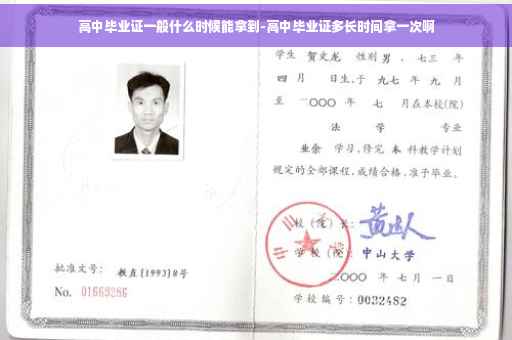 高中毕业证一般什么时候能拿到-高中毕业证多长时间拿一次啊
学生 贺文龙 性别 男 、七三 年
四 月 日生,于 九七 年 九 月
至 二〇〇〇 年 七 月在本校(院)
法 学 专业
业余 学习,修完 本 科教学计划
规定的全部课程,成绩合格,准予毕业。
校(院)长:
学校(院): 中山大学
二〇〇〇 年 七 月 一 日
批准文号: 教直[1993]8号
No. 01669286
学校编号: 0032482